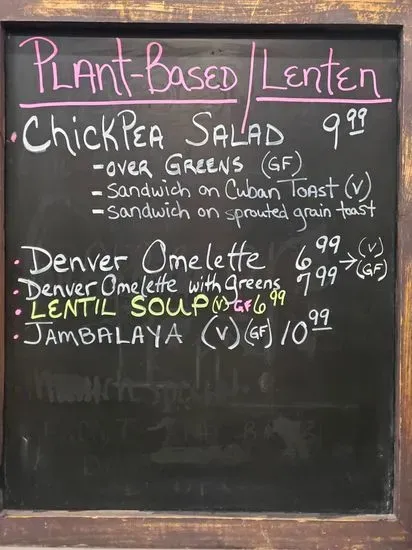 PLANT-BASED/LENTEN
• CHICKPEA SALAD 9.99
- OVER GREENS (GF)
- Sandwich on Cuban Toast (V)
- Sandwich on sprouted grain toast
• Denver Omelette 6.99 → (V) (GF)
• Denver Omelette with greens 7.99
• LENTIL SOUP (V) GF 6.99
• JAMBALAYA (V) (GF) 10.99